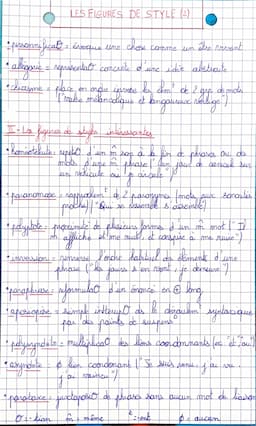 LES FIGURES DE STYLE (2)
• personnificat° = évoque une chose comme un être vivant
• allégorie = représentat° concrète d'une idée abstraite
• chiasme = place en ordre inverse les élmt de 2 gpes de mots
("valse mélancolique et langoureux vertige")
II - Les figures de styles intéressantes
• homéotéleute = répét° d'un m̂ son à la fin de phrases ou de
mots d'une m̂ phrase
• paronomase = rapprochemt de 2 paronymes (mots aux sonorités
proches) "Qui se ressemble s'assemble"
• polyptote = proximité de plusieurs formes d'un m̂ mot ("Il
m'afflige et me nuit, et conspire à me nuire")
• inversion = renverse l'ordre habituel des éléments d'une
phrase ("les jours s'en vont, je demeure")
• paraphrase = reformulat° d'un énoncé en ⊕ long
• aposiopèse = simple interrupt° de la syntaxique
par des points de suspens°
• polysyndète = multiplicat° des liens coordonnants (ex "et", "ou")
• asyndète = ø lien coordonnant ("Je suis venu, j'ai vu,
j'ai vaincu")
• parataxe = juxtaposit° de phrases sans aucun mot de liaison
m̂ = même t = ent ø = aucun